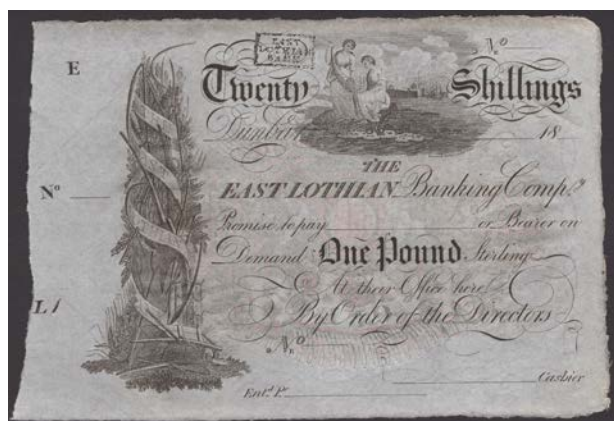 E
EAST
LOTHIAN
BANK
No
Twenty Shillings
Dunbar 18
THE
No EAST LOTHIAN Banking Compy
Promise to pay or Bearer on
Demand One Pound Sterling
At their Office here
L By Order of the Directors
No
Cashier
Entd. Pr.